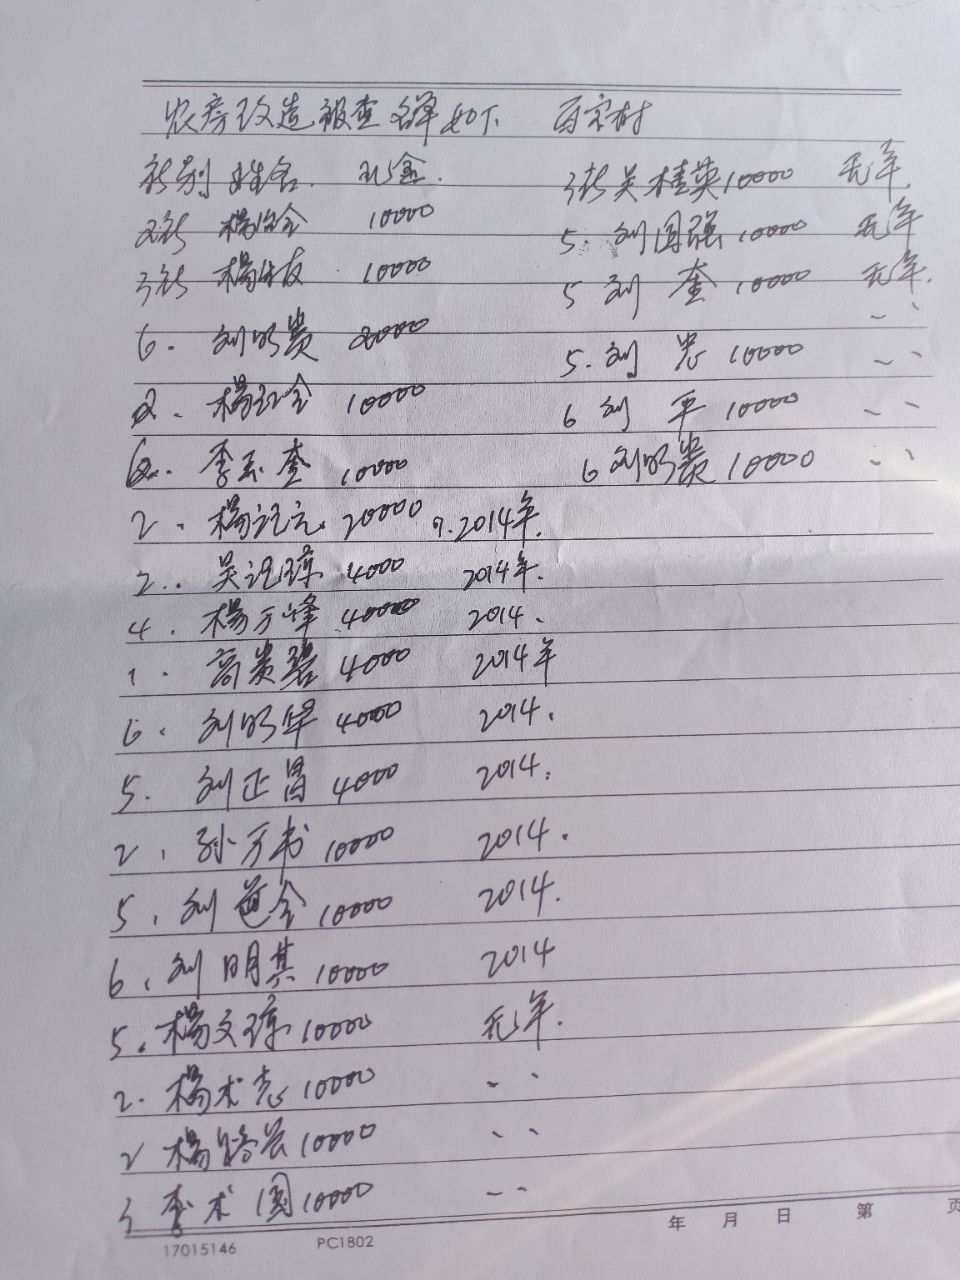 农房改造被查名单如下 百宗村
社别 姓名. 礼金.
2社 杨 全 10000
3社 杨 友 10000
6. 刘明贵 8000
2. 杨红全 10000
李玉奎 10000
2. 杨记元 20000 2014年.
2.. 吴记琼 4000 2014年.
4. 杨万峰 40000 2014.
1. 高贵碧 4000 2014年
6. 刘明华 4000 2014.
5. 刘正昌 4000 2014.
2. 孙万书 10000 2014.
5. 刘道全 10000 2014.
6. 刘明其 10000 2014
5. 杨文琼 10000 无年.
2. 杨术志 10000 〃
2 杨 10000 〃
3 李术国 10000 〃
3社 吴桂英 10000 无年.
5. 刘国强 10000 无年
5 刘奎 10000 无年.
5. 刘忠 10000 〃
6 刘平 10000 〃
6 刘明贵 10000 〃
年 月 日 第 页
17015146 PC1802